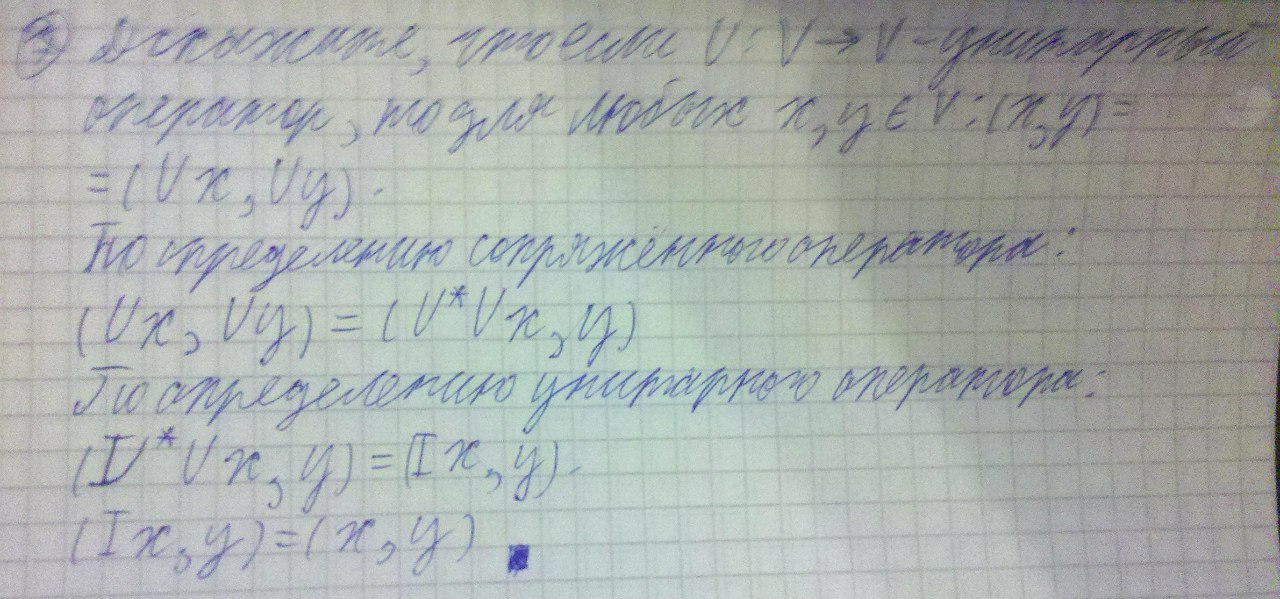 ⑦ Докажите, что если U: V → V - унитарный
оператор, то для любых x, y ∈ V: (x, y) =
= (Ux, Uy).
По определению сопряжённого оператора:
(Ux, Uy) = (U*Ux, y)
По определению унитарного оператора:
(U*Ux, y) = (Ix, y).
(Ix, y) = (x, y) ■